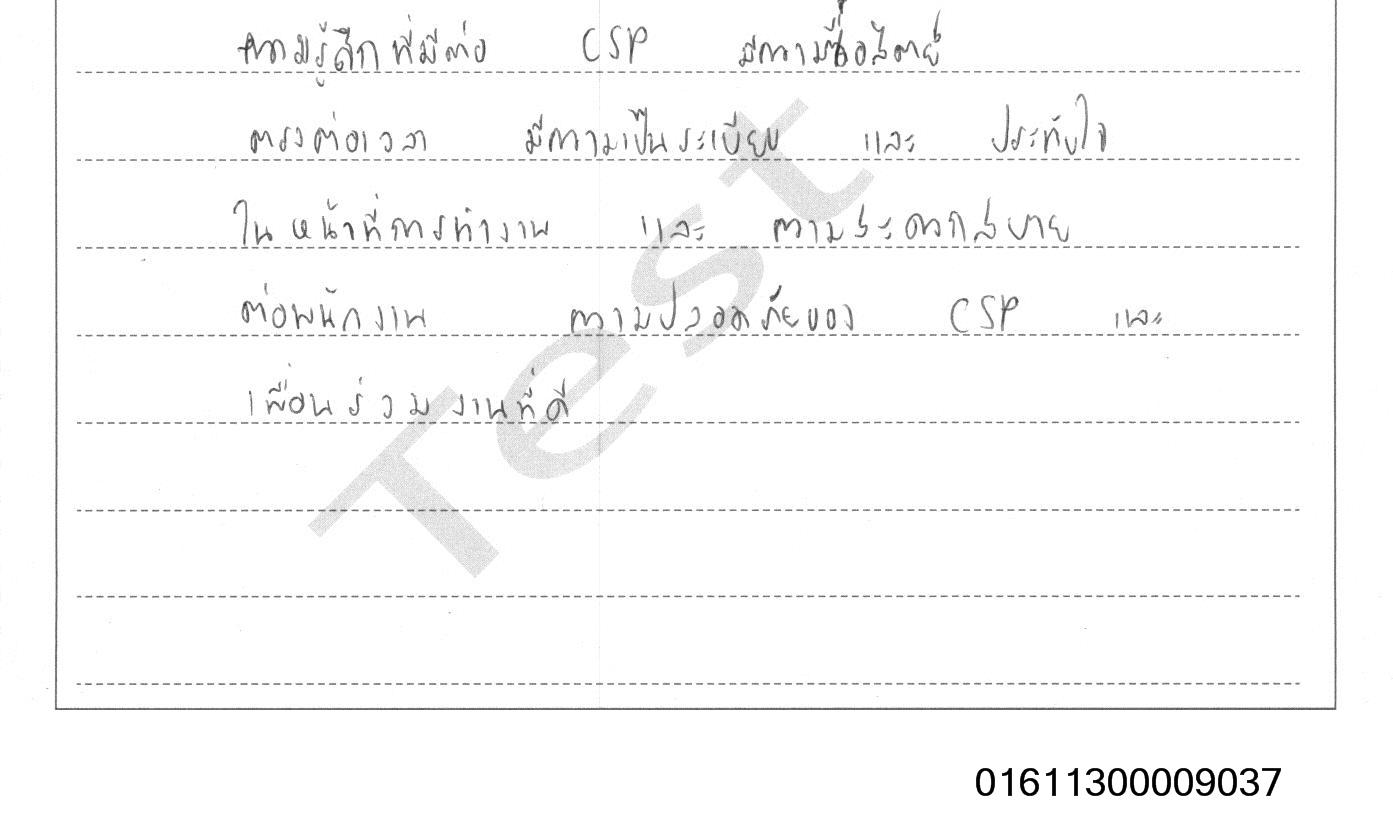 ความรู้สึกที่มีต่อ CSP มีความซื่อสัตย์
ตรงต่อเวลา มีความเป็นระเบียบ และ ประทับใจ
ในหน้าที่การทำงาน และ ความสะดวกสบาย
ต่อพนักงาน ความปลอดภัยของ CSP และ
เพื่อนร่วมงานที่ดี
Test
01611300009037